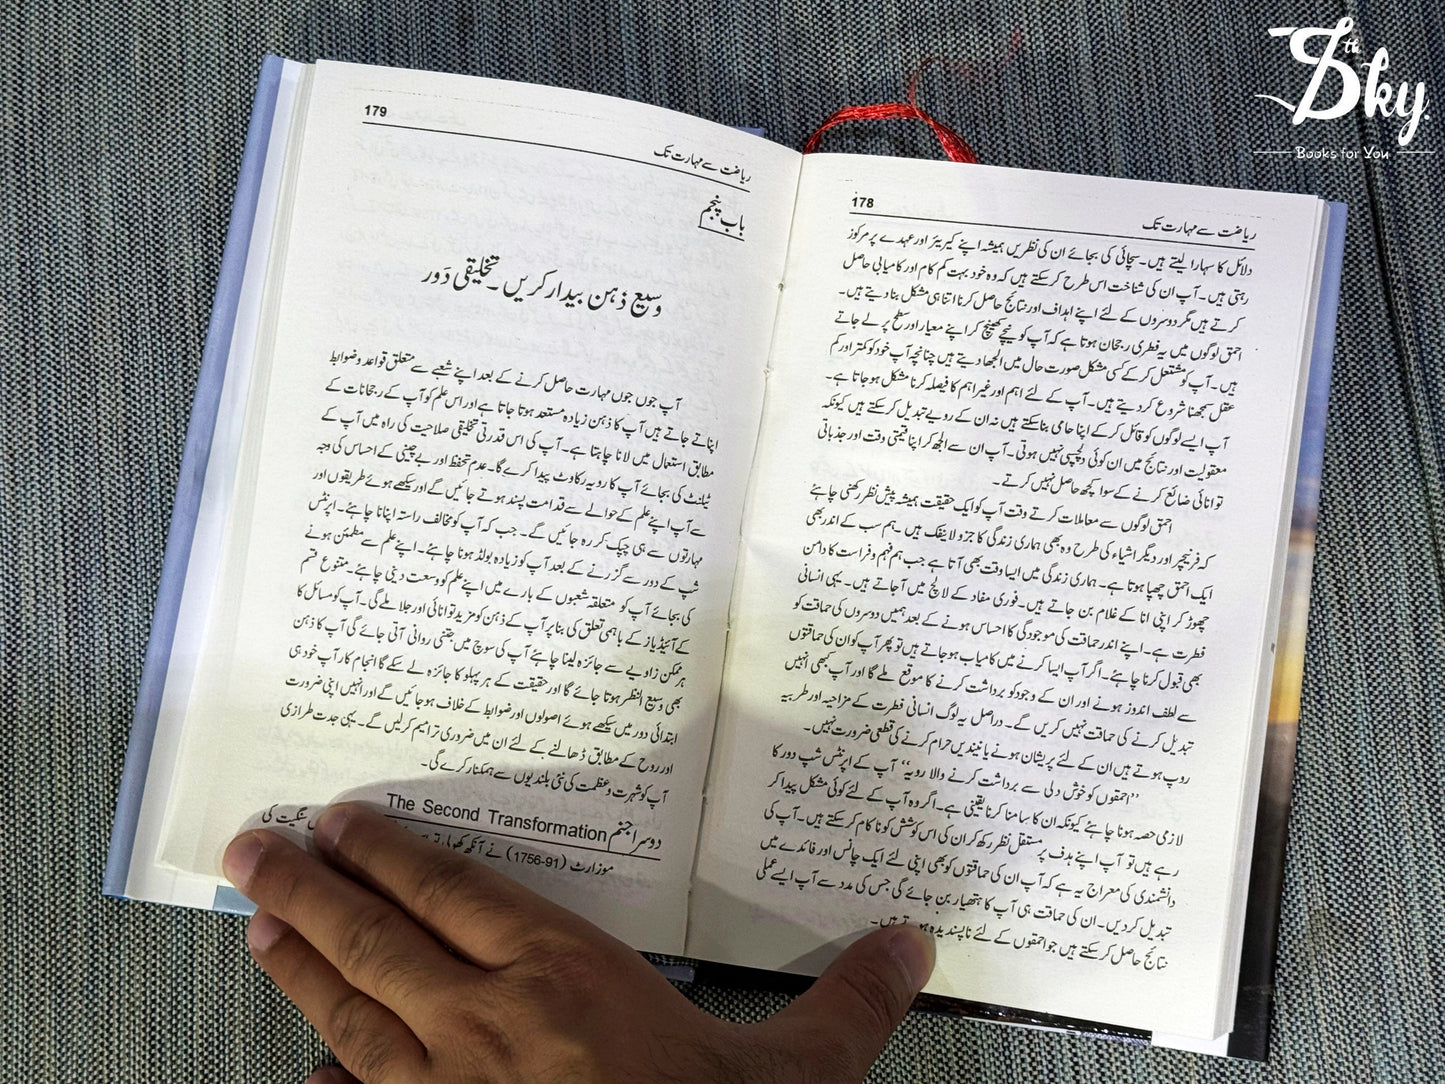 178
ریاضت سے مہارت تک
دلائل کا سہارا لیتے ہیں۔ سچائی کی بجائے ان کی نظریں ہمیشہ اپنے کیریئر اور عہدے پر مرکوز
رہتی ہیں۔ آپ ان کی شناخت اس طرح کر سکتے ہیں کہ وہ خود بہت کم کام اور کامیابی حاصل
کرتے ہیں مگر دوسروں کے لئے اپنے اہداف اور نتائج حاصل کرنا اتنا ہی مشکل بنا دیتے ہیں۔
احمق لوگوں میں یہ فطری رجحان ہوتا ہے کہ آپ کو نیچے کھینچ کر اپنے معیار اور سطح پر لے جاتے
ہیں۔ آپ کو مشتعل کر کے کسی مشکل صورت حال میں الجھا دیتے ہیں چنانچہ آپ خود کو کمتر اور کم
عقل سمجھنا شروع کر دیتے ہیں۔ آپ کے لئے اہم اور غیر اہم کا فیصلہ کرنا مشکل ہو جاتا ہے۔
آپ ایسے لوگوں کو قائل کر کے اپنا حامی بنا سکتے ہیں نہ ان کے رویے تبدیل کر سکتے ہیں کیونکہ
معقولیت اور نتائج میں ان کوئی دلچسپی نہیں ہوتی۔ آپ ان سے الجھ کر اپنا قیمتی وقت اور جذباتی
توانائی ضائع کرنے کے سوا کچھ حاصل نہیں کرتے۔
احمق لوگوں سے معاملات کرتے وقت آپ کو ایک حقیقت ہمیشہ پیش نظر رکھنی چاہئے
کہ فرنیچر اور دیگر اشیاء کی طرح وہ بھی ہماری زندگی کا جزو لاینفک ہیں۔ ہم سب کے اندر بھی
ایک احمق چھپا ہوتا ہے۔ ہماری زندگی میں ایسا وقت بھی آتا ہے جب ہم فہم و فراست کا دامن
چھوڑ کر اپنی انا کے غلام بن جاتے ہیں۔ فوری مفاد کے لالچ میں آجاتے ہیں۔ یہی انسانی
فطرت ہے۔ اپنے اندر حماقت کی موجودگی کا احساس ہونے کے بعد ہمیں دوسروں کی حماقت کو
بھی قبول کرنا چاہئے۔ اگر آپ ایسا کرنے میں کامیاب ہو جاتے ہیں تو پھر آپ کو ان کی حماقتوں
سے لطف اندوز ہونے اور ان کے وجود کو برداشت کرنے کا موقع ملے گا اور آپ کبھی انہیں
تبدیل کرنے کی حماقت نہیں کریں گے۔ دراصل یہ لوگ انسانی فطرت کے مزاحیہ اور طربیہ
روپ ہوتے ہیں ان کے لئے پریشان ہونے یا نیندیں حرام کرنے کی قطعی ضرورت نہیں۔
”احمقوں کو خوش دلی سے برداشت کرنے والا رویہ“ آپ کے اپرنٹس شپ دور کا
لازمی حصہ ہونا چاہئے کیونکہ ان کا سامنا کرنا یقینی ہے۔ اگر وہ آپ کے لئے کوئی مشکل پیدا کر
رہے ہیں تو آپ اپنے ہدف پر مستقل نظر رکھ کر ان کی اس کوشش کو ناکام کر سکتے ہیں۔ آپ کی
دانشمندی کی معراج یہ ہے کہ آپ ان کی حماقتوں کو بھی اپنی لئے ایک چانس اور فائدے میں
تبدیل کر دیں۔ ان کی حماقت ہی آپ کا ہتھیار بن جائے گی جس کی مدد سے آپ ایسے عملی
نتائج حاصل کر سکتے ہیں جو احمقوں کے لئے ناپسندیدہ ہوتے ہیں۔
179
ریاضت سے مہارت تک
باب پنجم
وسیع ذہن بیدار کریں۔ تخلیقی دَور
آپ جوں جوں مہارت حاصل کرنے کے بعد اپنے شعبے سے متعلق قواعد و ضوابط
اپناتے جاتے ہیں آپ کا ذہن زیادہ مستعد ہوتا جاتا ہے اور اس علم کو آپ کے رجحانات کے
مطابق استعمال میں لانا چاہتا ہے۔ آپ کی اس قدرتی تخلیقی صلاحیت کی راہ میں آپ کے
ٹیلنٹ کی بجائے آپ کا رویہ رکاوٹ پیدا کرے گا۔ عدم تحفظ اور بے چینی کے احساس کی وجہ
سے آپ اپنے علم کے حوالے سے قدامت پسند ہوتے جائیں گے اور سیکھے ہوئے طریقوں اور
مہارتوں سے ہی چپک کر رہ جائیں گے۔ جب کہ آپ کو مخالف راستہ اپنانا چاہئے۔ اپرنٹس
شپ کے دور سے گزرنے کے بعد آپ کو زیادہ بولڈ ہونا چاہئے۔ اپنے علم سے مطمئن ہونے
کی بجائے آپ کو متعلقہ شعبوں کے بارے میں اپنے علم کو وسعت دینی چاہئے۔ متنوع قسم
کے آئیڈیاز کے باہمی تعلق کی بنا پر آپ کے ذہن کو مزید توانائی اور جلا ملے گی۔ آپ کو مسائل کا
ہر ممکن زاویے سے جائزہ لینا چاہئے آپ کی سوچ میں جتنی روانی آتی جائے گی آپ کا ذہن
بھی وسیع النظر ہوتا جائے گا اور حقیقت کے ہر پہلو کا جائزہ لے سکے گا انجام کار آپ خود ہی
ابتدائی دور میں سیکھے ہوئے اصولوں اور ضوابط کے خلاف ہو جائیں گے اور انہیں اپنی ضرورت
اور روح کے مطابق ڈھالنے کے لئے ان میں ضروری ترامیم کر لیں گے۔ یہی جدت طرازی
آپ کو شہرت و عظمت کی نئی بلندیوں سے ہمکنار کرے گی۔
دوسرا جنم The Second Transformation
موزارٹ (1756-91) نے آنکھ کھولی تو سنگیت کی
The Sky
Books for You